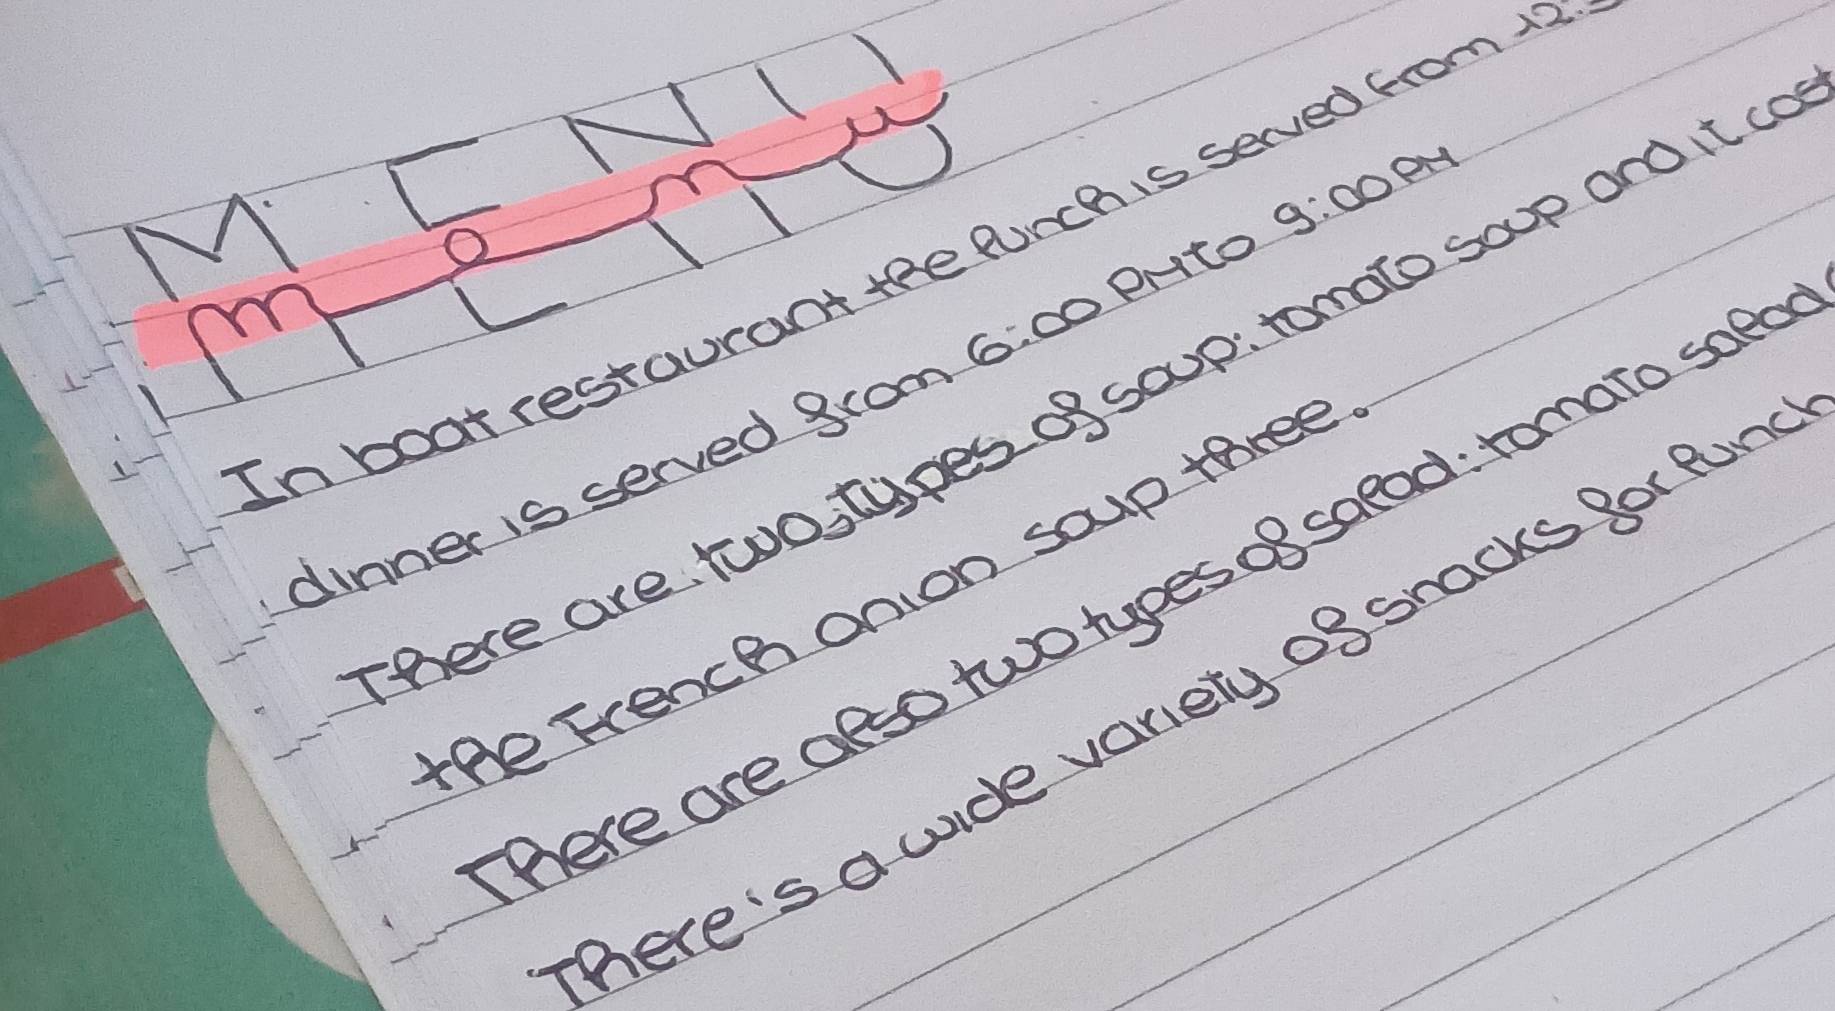 MENU
menu
In boat restaurant the lunch is served from 12:
dinner is served from 6:00 PM to 9:00 PM
There are two types of soup: tomato soup and it cost
the French onion soup three.
There are also two types of salad: tomato salad
There's a wide variety of snacks for lunch